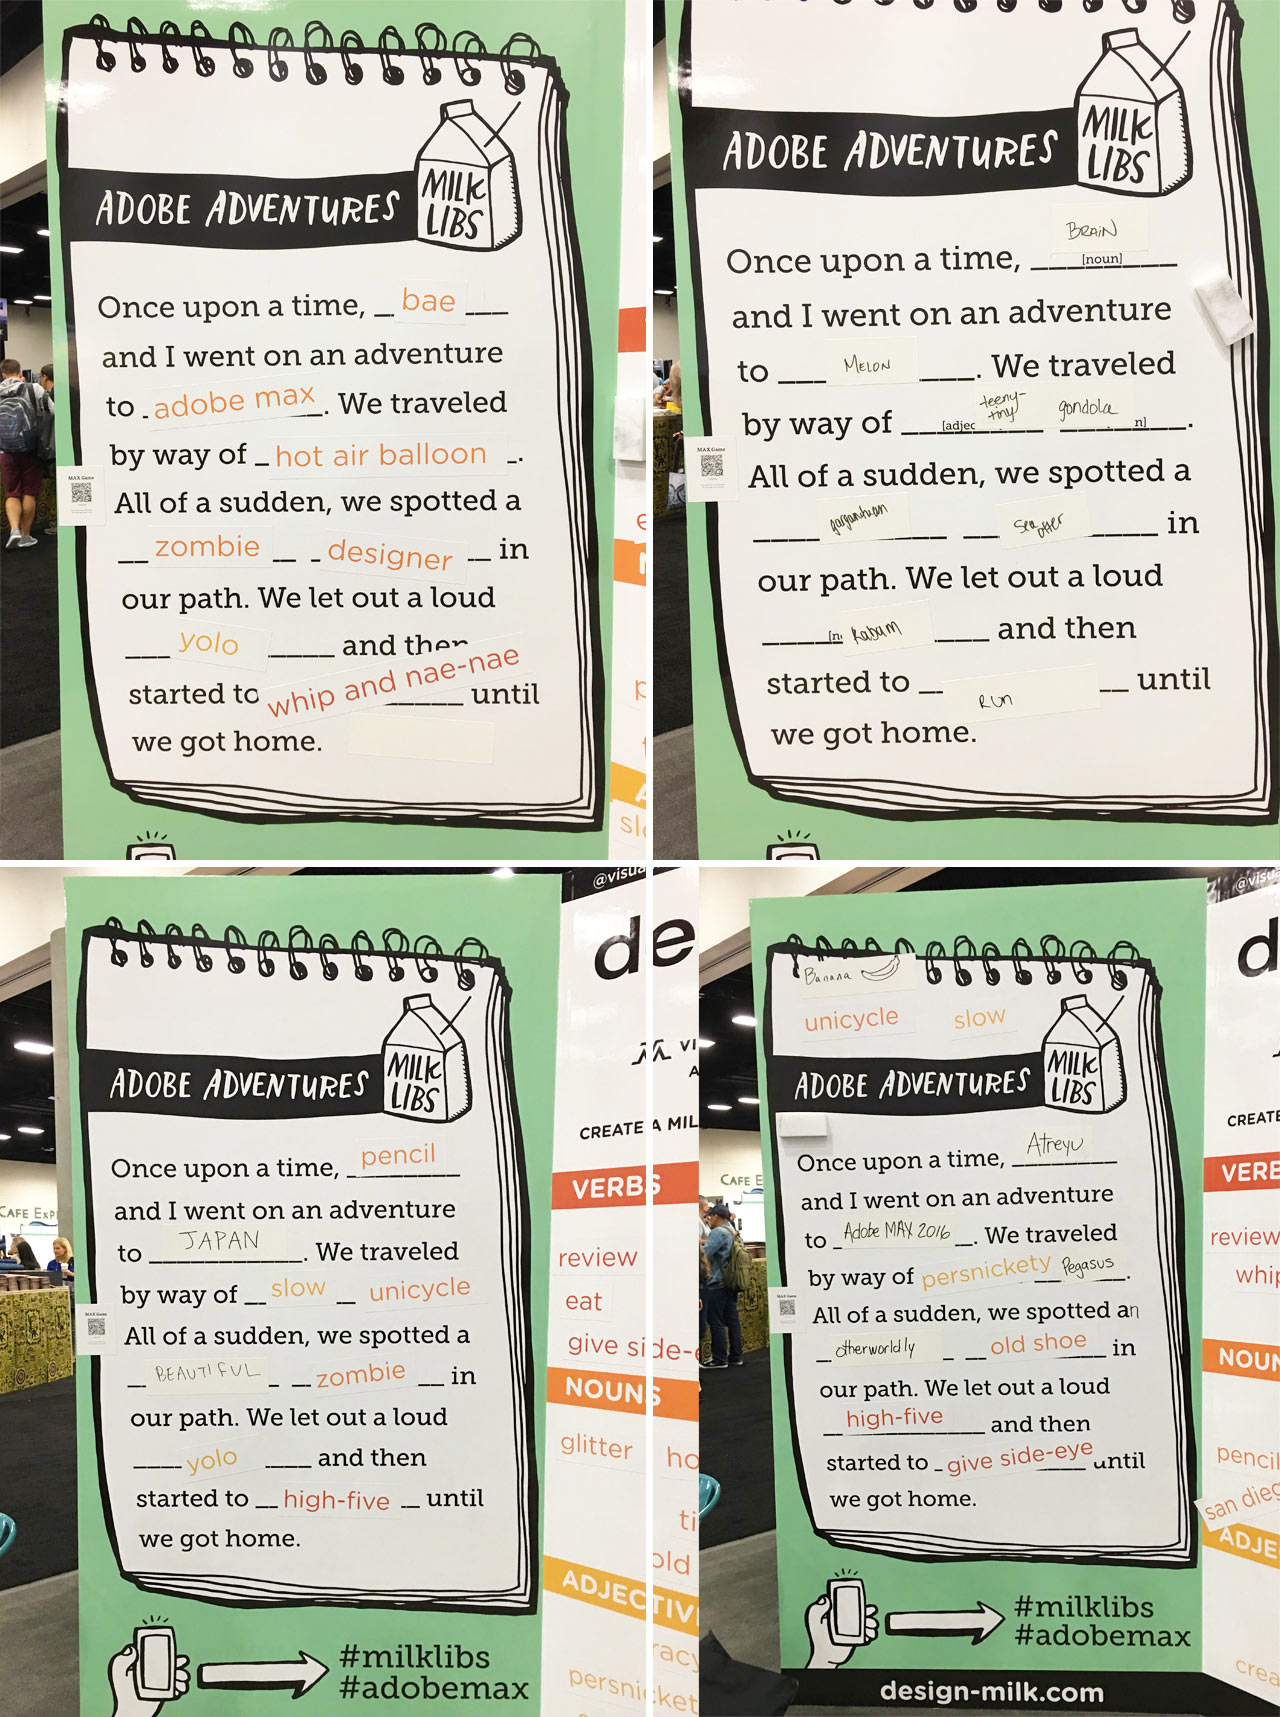 ADOBE ADVENTURES
MILK
LIBS
Once upon a time, bae
and I went on an adventure
to adobe max. We traveled
by way of hot air balloon.
All of a sudden, we spotted a
zombie designer in
our path. We let out a loud
yolo and then
started to whip and nae-nae until
we got home.
MAX Game
ADOBE ADVENTURES
MILK
LIBS
Once upon a time, BRAIN
[noun]
and I went on an adventure
to MELON. We traveled
by way of teeny-tiny gondola.
MAX Game
All of a sudden, we spotted a
gargantuan sea otter in
our path. We let out a loud
Kabam and then
started to RUN until
we got home.
@visua
de
ADOBE ADVENTURES
MILK
LIBS
CREATE A MIL
Once upon a time, pencil
and I went on an adventure
to JAPAN. We traveled
by way of slow unicycle
All of a sudden, we spotted a
BEAUTIFUL zombie in
our path. We let out a loud
yolo and then
started to high-five until
we got home.
MAX Game
CAFE EXP
VERBS
review
eat
give side-e
NOUNS
glitter
old
ADJECTIV
persnicket
#milklibs
#adobemax
@visua
d
Banana
unicycle slow
ADOBE ADVENTURES
MILK
LIBS
CREATE
Once upon a time, Atreyu
and I went on an adventure
to Adobe MAX 2016. We traveled
by way of persnickety Pegasus.
All of a sudden, we spotted an
otherworldly old shoe in
our path. We let out a loud
high-five and then
started to give side-eye until
we got home.
MAX Game
CAFE E
VERB
review
whip
NOUN
pencil
san dieg
ADJE
crea
#milklibs
#adobemax
design-milk.com